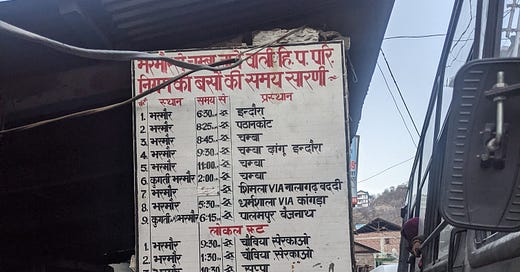 भरमौर से चम्बा जाने वाली हि.प.परि.
निगम की बसों की समय सारणी
स्थान समय से प्रस्थान
1. भरमौर 6:30 इन्दौरा
2. भरमौर 8:25 पठानकोट
3. भरमौर 8:45 चम्बा
4. भरमौर 9:30 चम्बा ढांगू इन्दौरा
5. भरमौर 11:00 चम्बा
6. कुगती भरमौर 2:00 चम्बा
7. भरमौर शिमला VIA नालागढ़ बददी
8. भरमौर 5:30 धर्मशाला VIA कांगड़ा
9. कुगती भरमौर 6:15 पालमपुर बैजनाथ
लोकल रूट
1. भरमौर 9:30 चौबिया सेरकाओ
2. भरमौर 1:30 चौबिया सेरकाओ
3. भरमौर 10:30